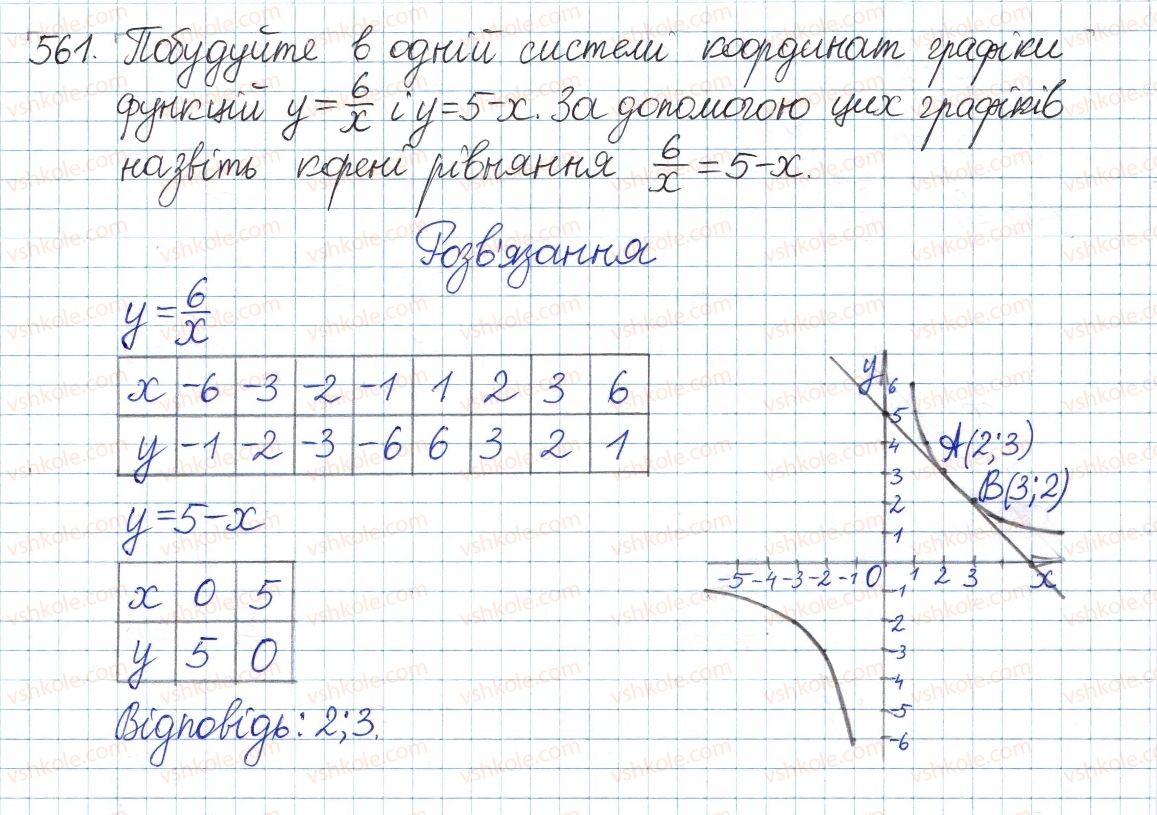 561. Побудуйте в одній системі координат графіки
функцій y = 6/x і y = 5-x. За допомогою цих графіків
назвіть корені рівняння 6/x = 5-x.
Розв'язання
y = 6/x
x -6 -3 -2 -1 1 2 3 6
y -1 -2 -3 -6 6 3 2 1
y = 5-x
x 0 5
y 5 0
Відповідь: 2; 3.
y
6
5
4
3
2
1
A(2;3)
B(3;2)
-5 -4 -3 -2 -1 0 1 2 3 x
-1
2
-3
-4
-5
-6
vshkole.com